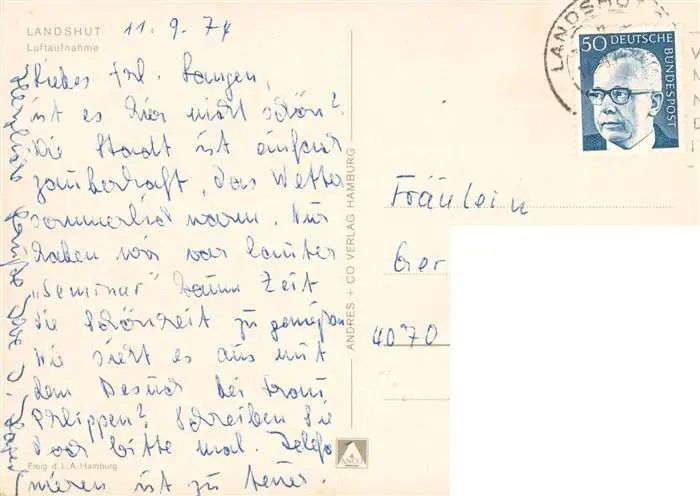 LANDSHUT
Luftaufnahme
11.9.74
Liebes Frl. Langen,
ist es hier nicht schön?
Die Stadt ist einfach
zauberhaft, das Wetter
sommerlich warm. Nur
haben wir vor lauter
„Seminar" kaum Zeit
die Schönheit zu genießen
Wie sieht es aus mit
dem Besuch bei Frau
Philippen? Schreiben Sie
doch bitte mal. Telefo
nieren ist zu teuer.
Herzliche Grüße Ihre
Freig d. L. A. Hamburg
ANDRES + CO VERLAG HAMBURG
ANCO
LANDSHUT
50 DEUTSCHE BUNDESPOST
Fräulein
Ger
4070